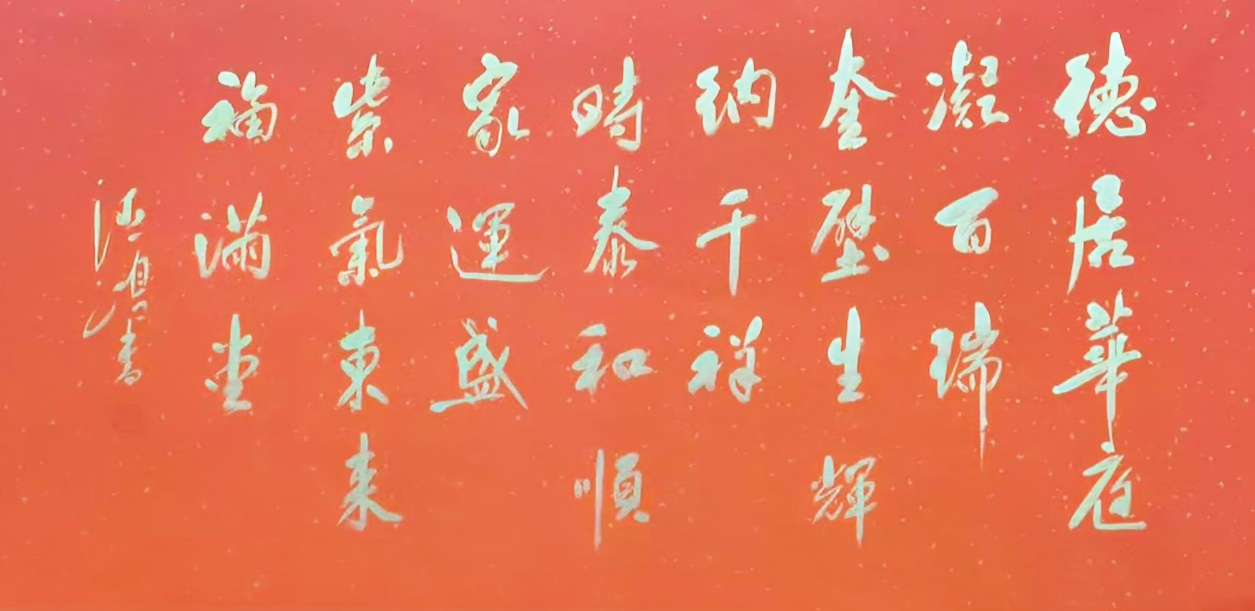 德居華庭
凝百瑞
奎壁生輝
納千祥
時泰和順
家運盛
紫氣東来
福滿堂
書